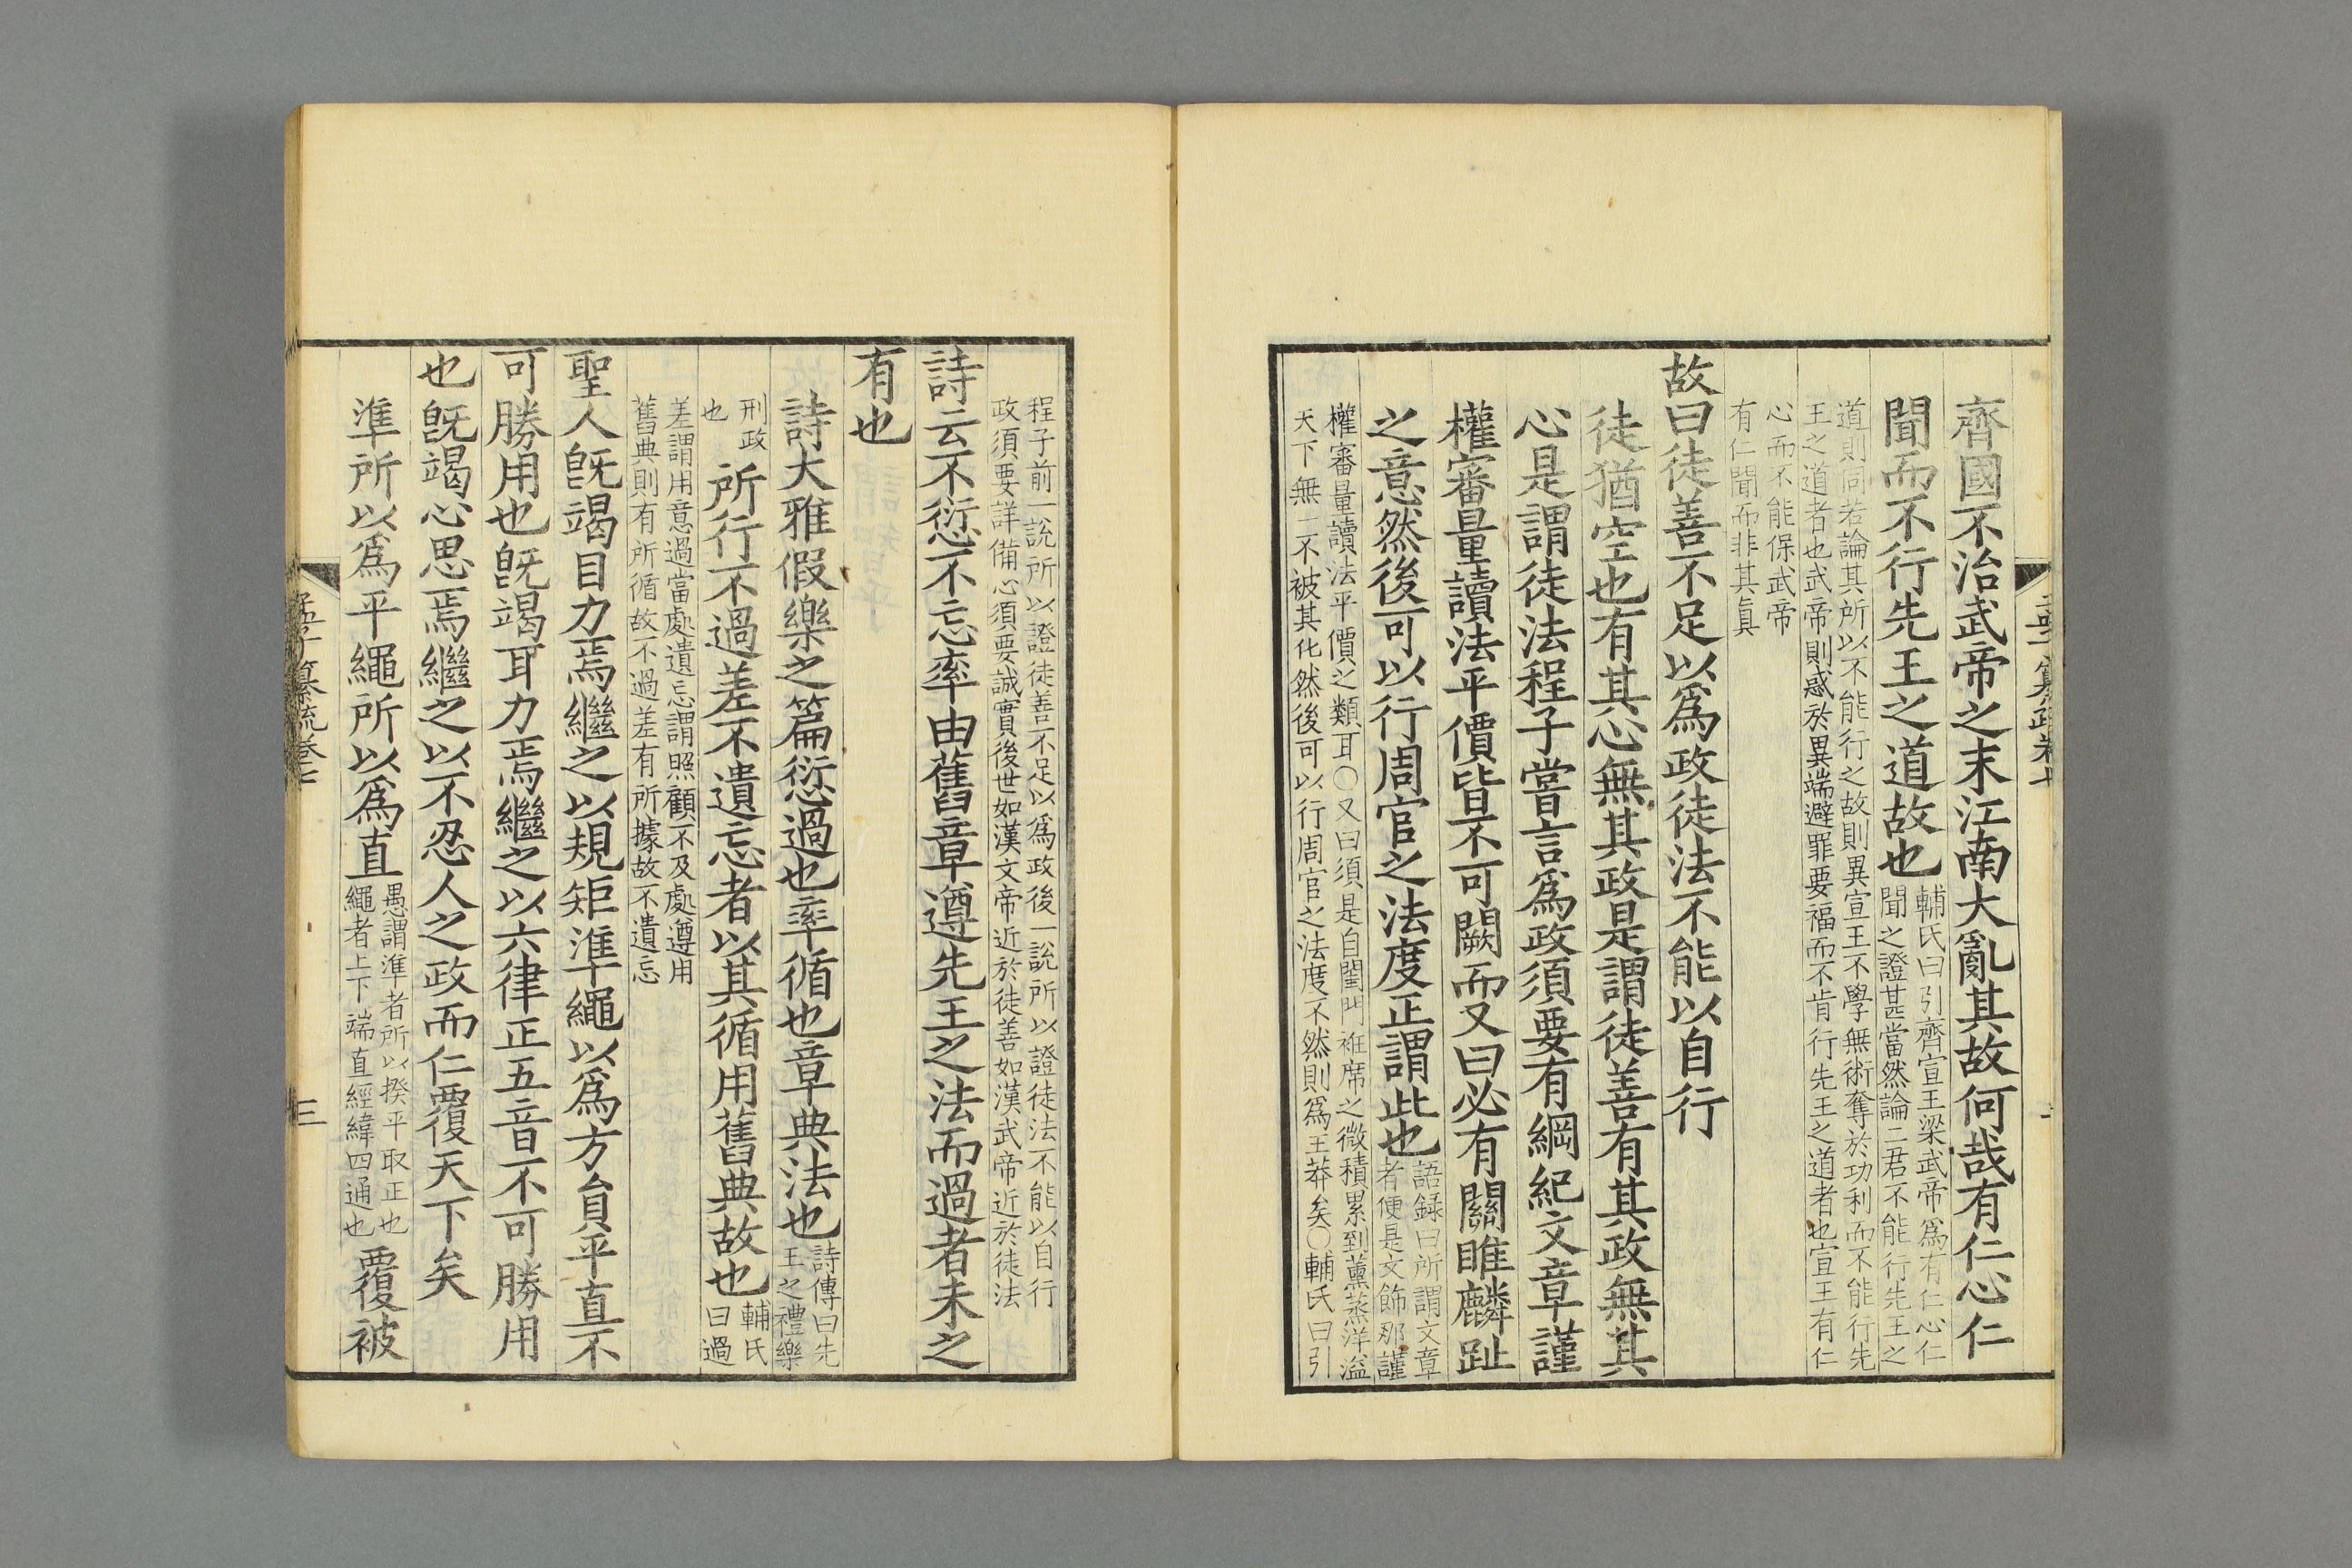 齊國不治武帝之末江南大亂其故何哉有仁心仁
聞而不行先王之道故也
輔氏曰引齊宣王梁武帝爲有仁心仁
聞之證甚當然論二君不能行先王之
道則同若論其所以不能行之故則異宣王不學無術奪於功利而不能行先
王之道者也武帝則惑於異端避罪要福而不肯行先王之道者也宣王有仁
心而不能保武帝
有仁聞而非其眞
故曰徒善不足以爲政徒法不能以自行
徒猶空也有其心無其政是謂徒善有其政無其
心是謂徒法程子嘗言爲政須要有綱紀文章謹
權審量讀法平價皆不可闕而又曰必有關雎麟趾
之意然後可以行周官之法度正謂此也
語録曰所謂文章
者便是文飾那謹
權審量讀法平價之類耳○又曰須是自閨門袵席之微積累到薰蒸洋溢
天下無一不被其化然後可以行周官之法度不然則爲王莽矣○輔氏曰引
程子前一說所以證徒善不足以爲政後一說所以證徒法不能以自行
政須要詳備心須要誠實後世如漢文帝近於徒善如漢武帝近於徒法
詩云不愆不忘率由舊章遵先王之法而過者未之
有也
詩大雅假樂之篇愆過也率循也章典法也
詩傳曰先
王之禮樂
刑政
也
所行不過差不遺忘者以其循用舊典故也
輔氏
曰過
差謂用意過當處遺忘謂照顧不及處遵用
舊典則有所循故不過差有所據故不遺忘
聖人旣竭目力焉繼之以規矩準繩以爲方員平直不
可勝用也旣竭耳力焉繼之以六律正五音不可勝用
也旣竭心思焉繼之以不忍人之政而仁覆天下矣
準所以爲平繩所以爲直
愚謂準者所以揆平取正也
繩者上下端直經緯四通也
覆被
孟子纂疏卷七
三